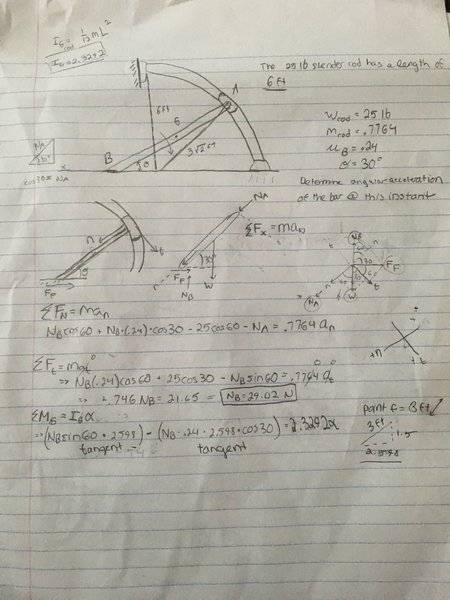 I_G rod = 1/12 mL²
I_G = 2.3292
The 25 lb slender rod has a length of
6 ft
A
6ft
G
B
θ
3√2 ft
W_rod = 25 lb
m_rod = .7764
μ_B = .24
θ = 30°
30°
x
cos30 = N_A
Determine angular acceleration
of the bar @ this instant
n
t
θ
F_F
N_A
ΣF_x = ma_n
30°
F_F
N_B
W
n
N_B
30
F_F
N_A
W
t
ΣF_N = ma_n
N_B cos60 + N_B·(.24)·cos30 - 25cos60 - N_A = .7764 a_n
+n
+t
ΣF_t = ma_t 0
⇒ N_B(.24)cos60 + 25cos30 - N_B sin60 = .7764 a_t 0
⇒ .746 N_B = 21.65 = N_B = 29.02 N
ΣM_G = I_G α
⇒ (N_B sin60 · 2.598) - (N_B · .24 · 2.598 · cos30) = 2.3292α
tangent
tangent
point G = 3ft
3ft
1.5
2.598